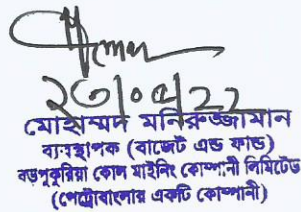 ২৩/০৫/২২
মোহাম্মদ মনিরুজ্জামান
ব্যবস্থাপক (বাজেট এন্ড ফান্ড)
বড়পুকুরিয়া কোল মাইনিং কোম্পানী লিমিটেড
(পেট্রোবাংলার একটি কোম্পানী)